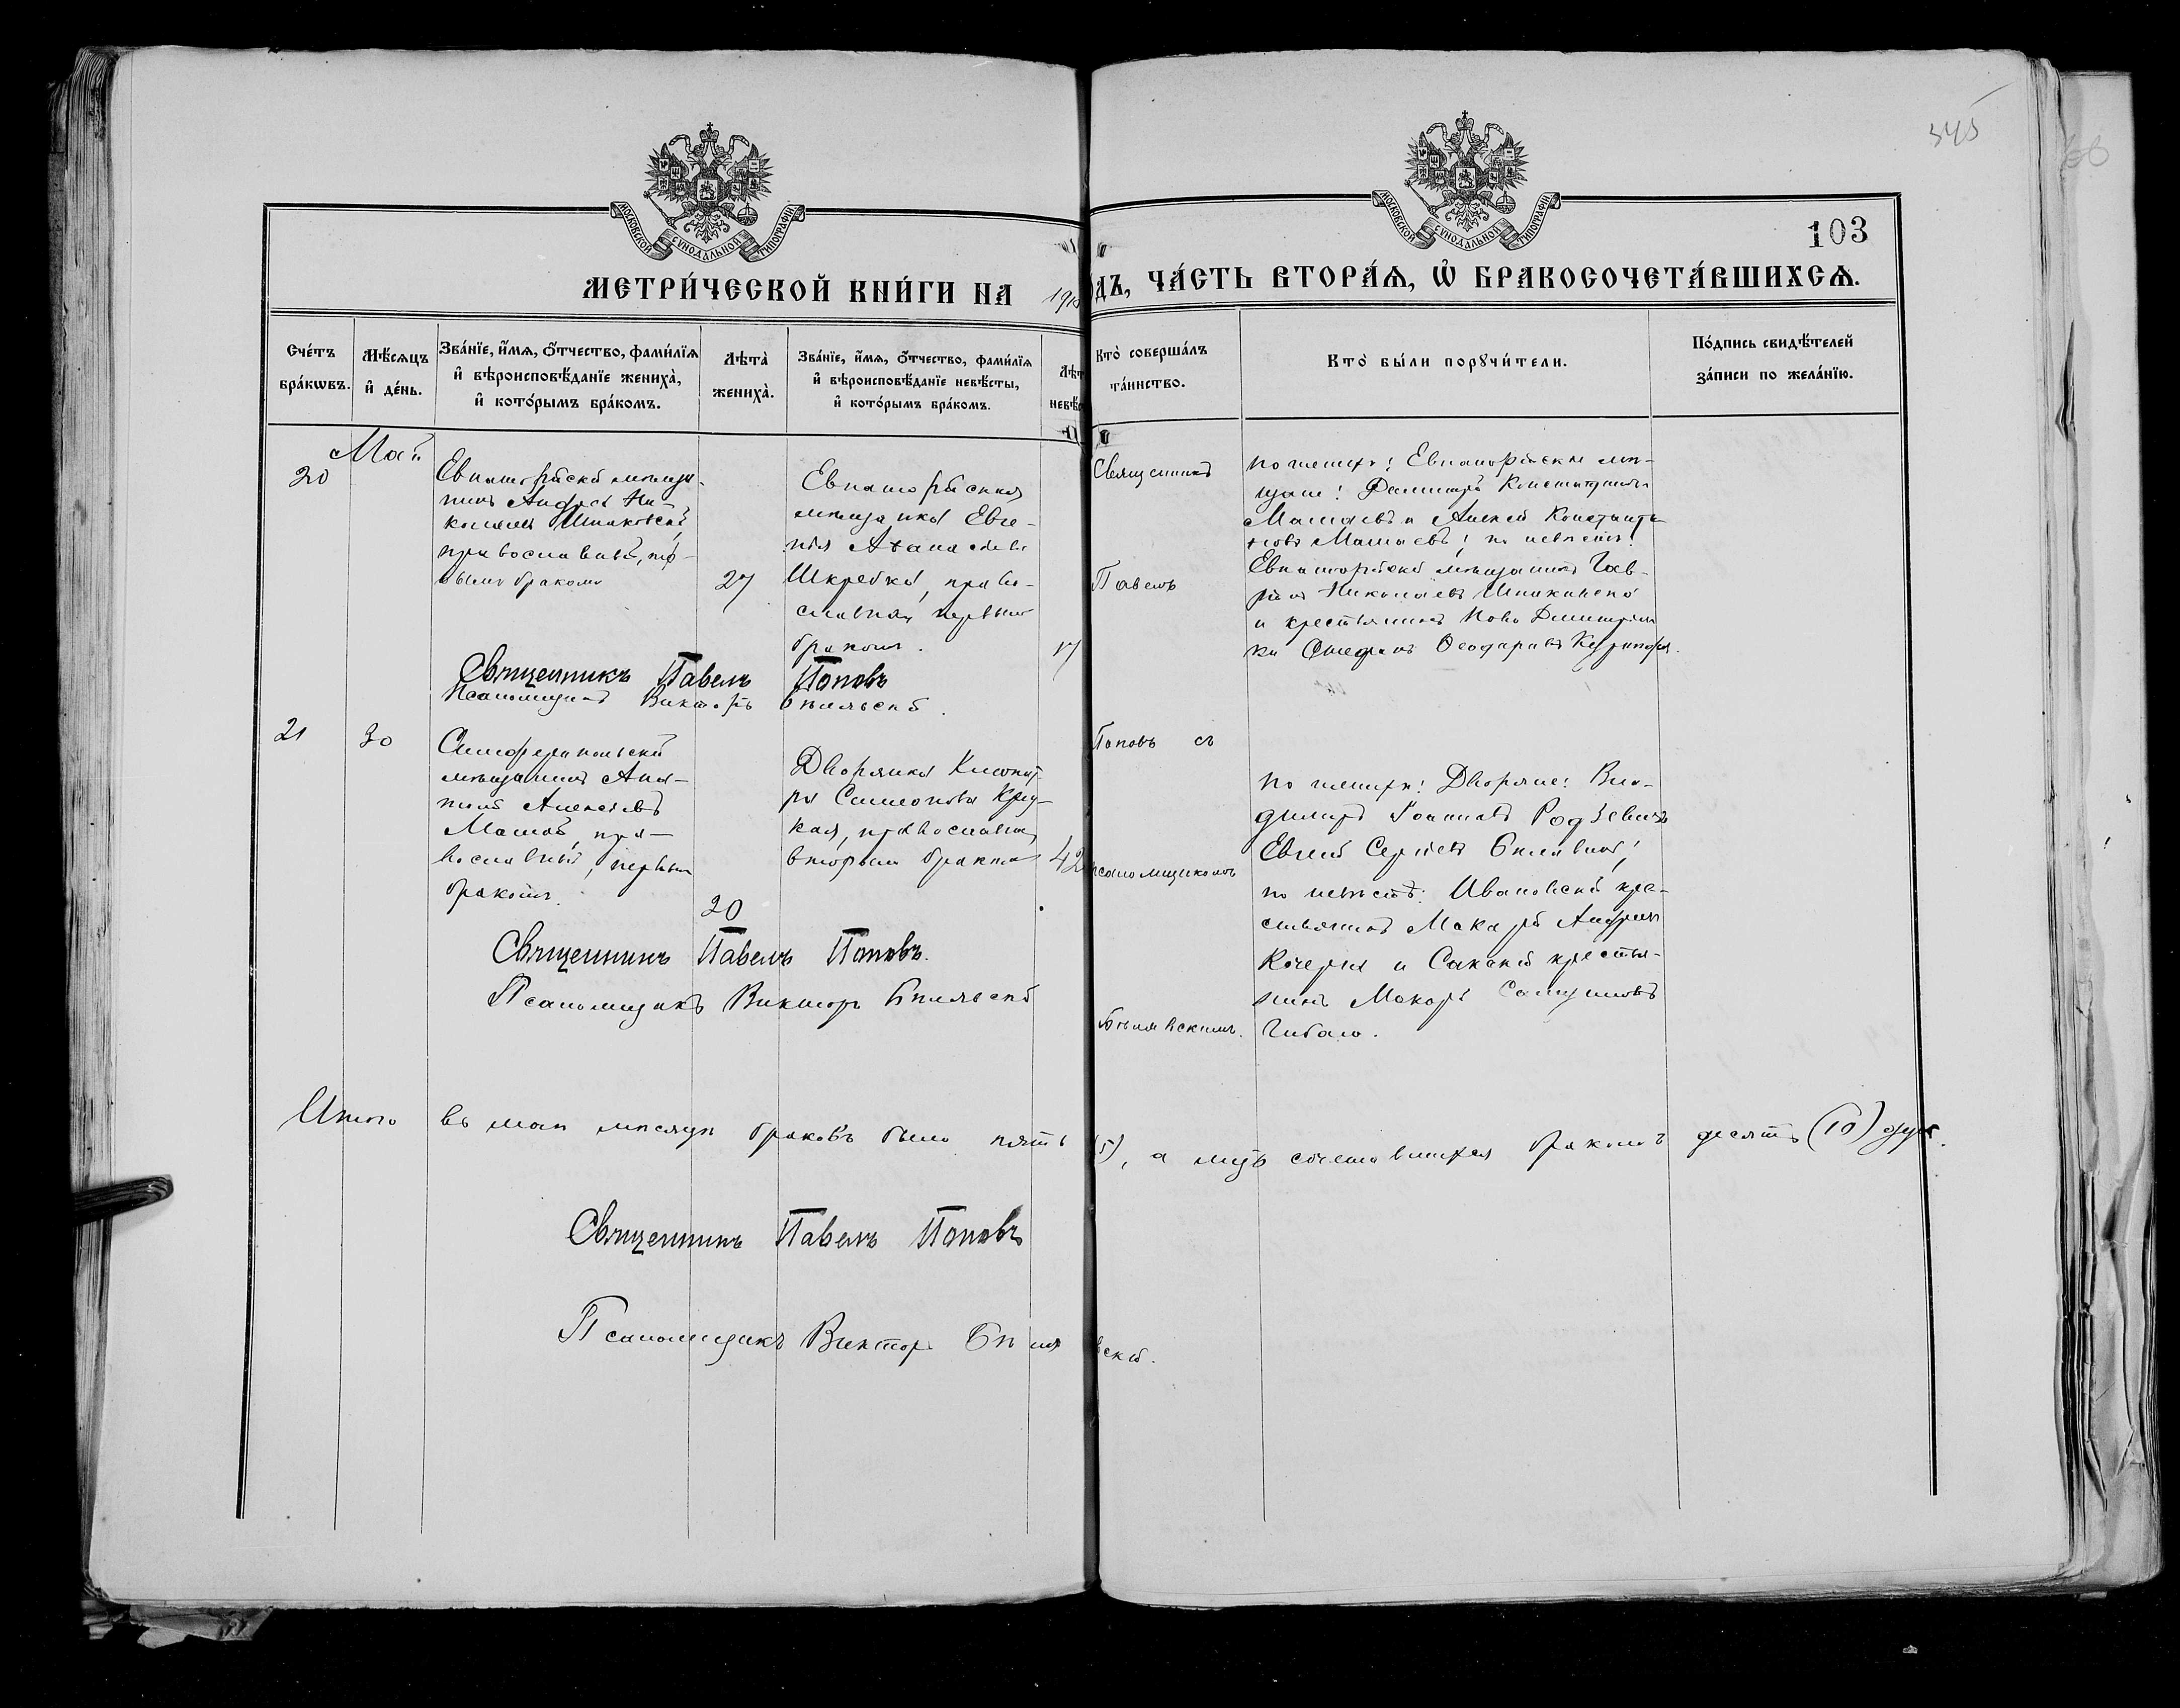 345
103
МОСКОВСКОЙ СУНОДАЛЬНОЙ ТИПОГРАФІИ
МОСКОВСКОЙ СУНОДАЛЬНОЙ ТИПОГРАФІИ
МЕТРИ́ЧЕСКОЙ КНИ́ГИ НА 191 ДЪ, ЧА́СТЬ ВТОРА́Ѧ, Ѽ БРАКОСОЧЕТА́ВШИХСѦ.
Сче́тъ бра́кѡвъ.
Мѣ́сѧцъ и҆ де́нь.
Зва́нїе, и҆́мѧ, ѻ҆́тчество, фами́лїѧ и҆ вѣроисповѣ́данїе жениха̀, и҆ кото́рымъ бра́комъ.
Лѣта̀ жениха̀.
Зва́нїе, и҆́мѧ, ѻ҆́тчество, фами́лїѧ и҆ вѣроисповѣ́данїе невѣ́сты, и҆ кото́рымъ бра́комъ.
Лѣт невѣс
Кто̀ соверша́лъ та́инство.
Кто̀ бы́ли порꙋчи́тели.
По́дпись свидѣ́телей за́писи по жела́нїю.
Май
20
Евпаторійскій мѣща-
нинъ Андрей Ни-
колаевъ Шпаковскій,
православный, пер-
вымъ бракомъ
27
Евпаторійская
мѣщанка Евге-
нія Аѳанасіева
Шкребка, право-
славная, первымъ
бракомъ.
17
Священникъ
Павелъ
Поповъ съ
псаломщикомъ
Бѣлявскимъ.
по женихѣ: Евпаторійскіе мѣ-
щане: Димитрій Константиновъ
Машаевъ и Алексѣй Константи-
новъ Машаевъ; по невѣстѣ:
Евпаторійскій мѣщанинъ Гав-
ріилъ Николаевъ Шпаковскій
и крестьянинъ Ново Димитріев
ки Стефанъ Ѳеодоровъ
Священникъ Павелъ Поповъ
Псаломщикъ Викторъ Бѣлявскій.
21
30
Симферопольскій
мѣщанинъ Ана-
толій Алексѣевъ
пра-
вославный, первымъ
бракомъ.
20
Дворянка Клеопат-
ра Симеонова
православная,
вторымъ бракомъ
42
по женихѣ: Дворяне: Вла-
димиръ Іоанновъ Родзевичъ
Евгеній Сергіевъ
по невѣстѣ: Ивановскій кре-
стьянинъ Макарій Андреевъ
Кочерга и Сакскій крестья-
нинъ Макаръ
Священникъ Павелъ Поповъ.
Псаломщикъ Викторъ Бѣлявскій
Итого въ маѣ мѣсяцѣ браковъ было пять (5), а лицъ сочетавшихся бракомъ десять (10) душъ.
Священникъ Павелъ Поповъ
Псаломщикъ Викторъ Бѣлявскій.